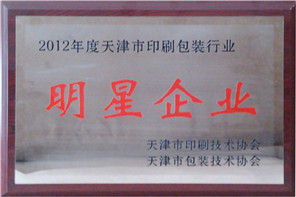 2012年度天津市印刷包装行业
明星企业
天津市印刷技术协会
天津市包装技术协会